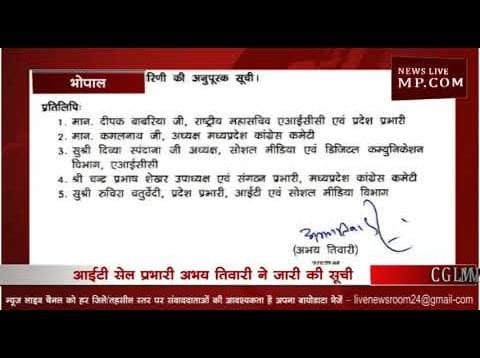 भोपाल
रिणी की अनुपूरक सूची।
NEWS LIVE
MP.COM
प्रतिलिपिः
1. मान. दीपक बाबरिया जी, राष्ट्रीय महासचिव एआईसीसी एवं प्रदेश प्रभारी
2. मान. कमलनाथ जी, अध्यक्ष मध्यप्रदेश कांग्रेस कमेटी
3. सुश्री दिव्या स्पंदाना जी अध्यक्ष, सोशल मीडिया एवं डिजिटल कम्युनिकेशन
विभाग, एआईसीसी
4. श्री चन्द्र प्रभाष शेखर उपाध्यक्ष एवं संगठन प्रभारी, मध्यप्रदेश कांग्रेस कमेटी
5. सुश्री रुचिरा चतुर्वेदी, प्रदेश प्रभारी, आईटी एवं सोशल मीडिया विभाग
(अभय तिवारी)
आईटी सेल प्रभारी अभय तिवारी ने जारी की सूची
न्यूज लाइव चैनल को हर जिले/तहसील स्तर पर संवाददाताओं की आवश्यकता है अपना बायोडाटा भेजें – livenewsroom24@gmail.com